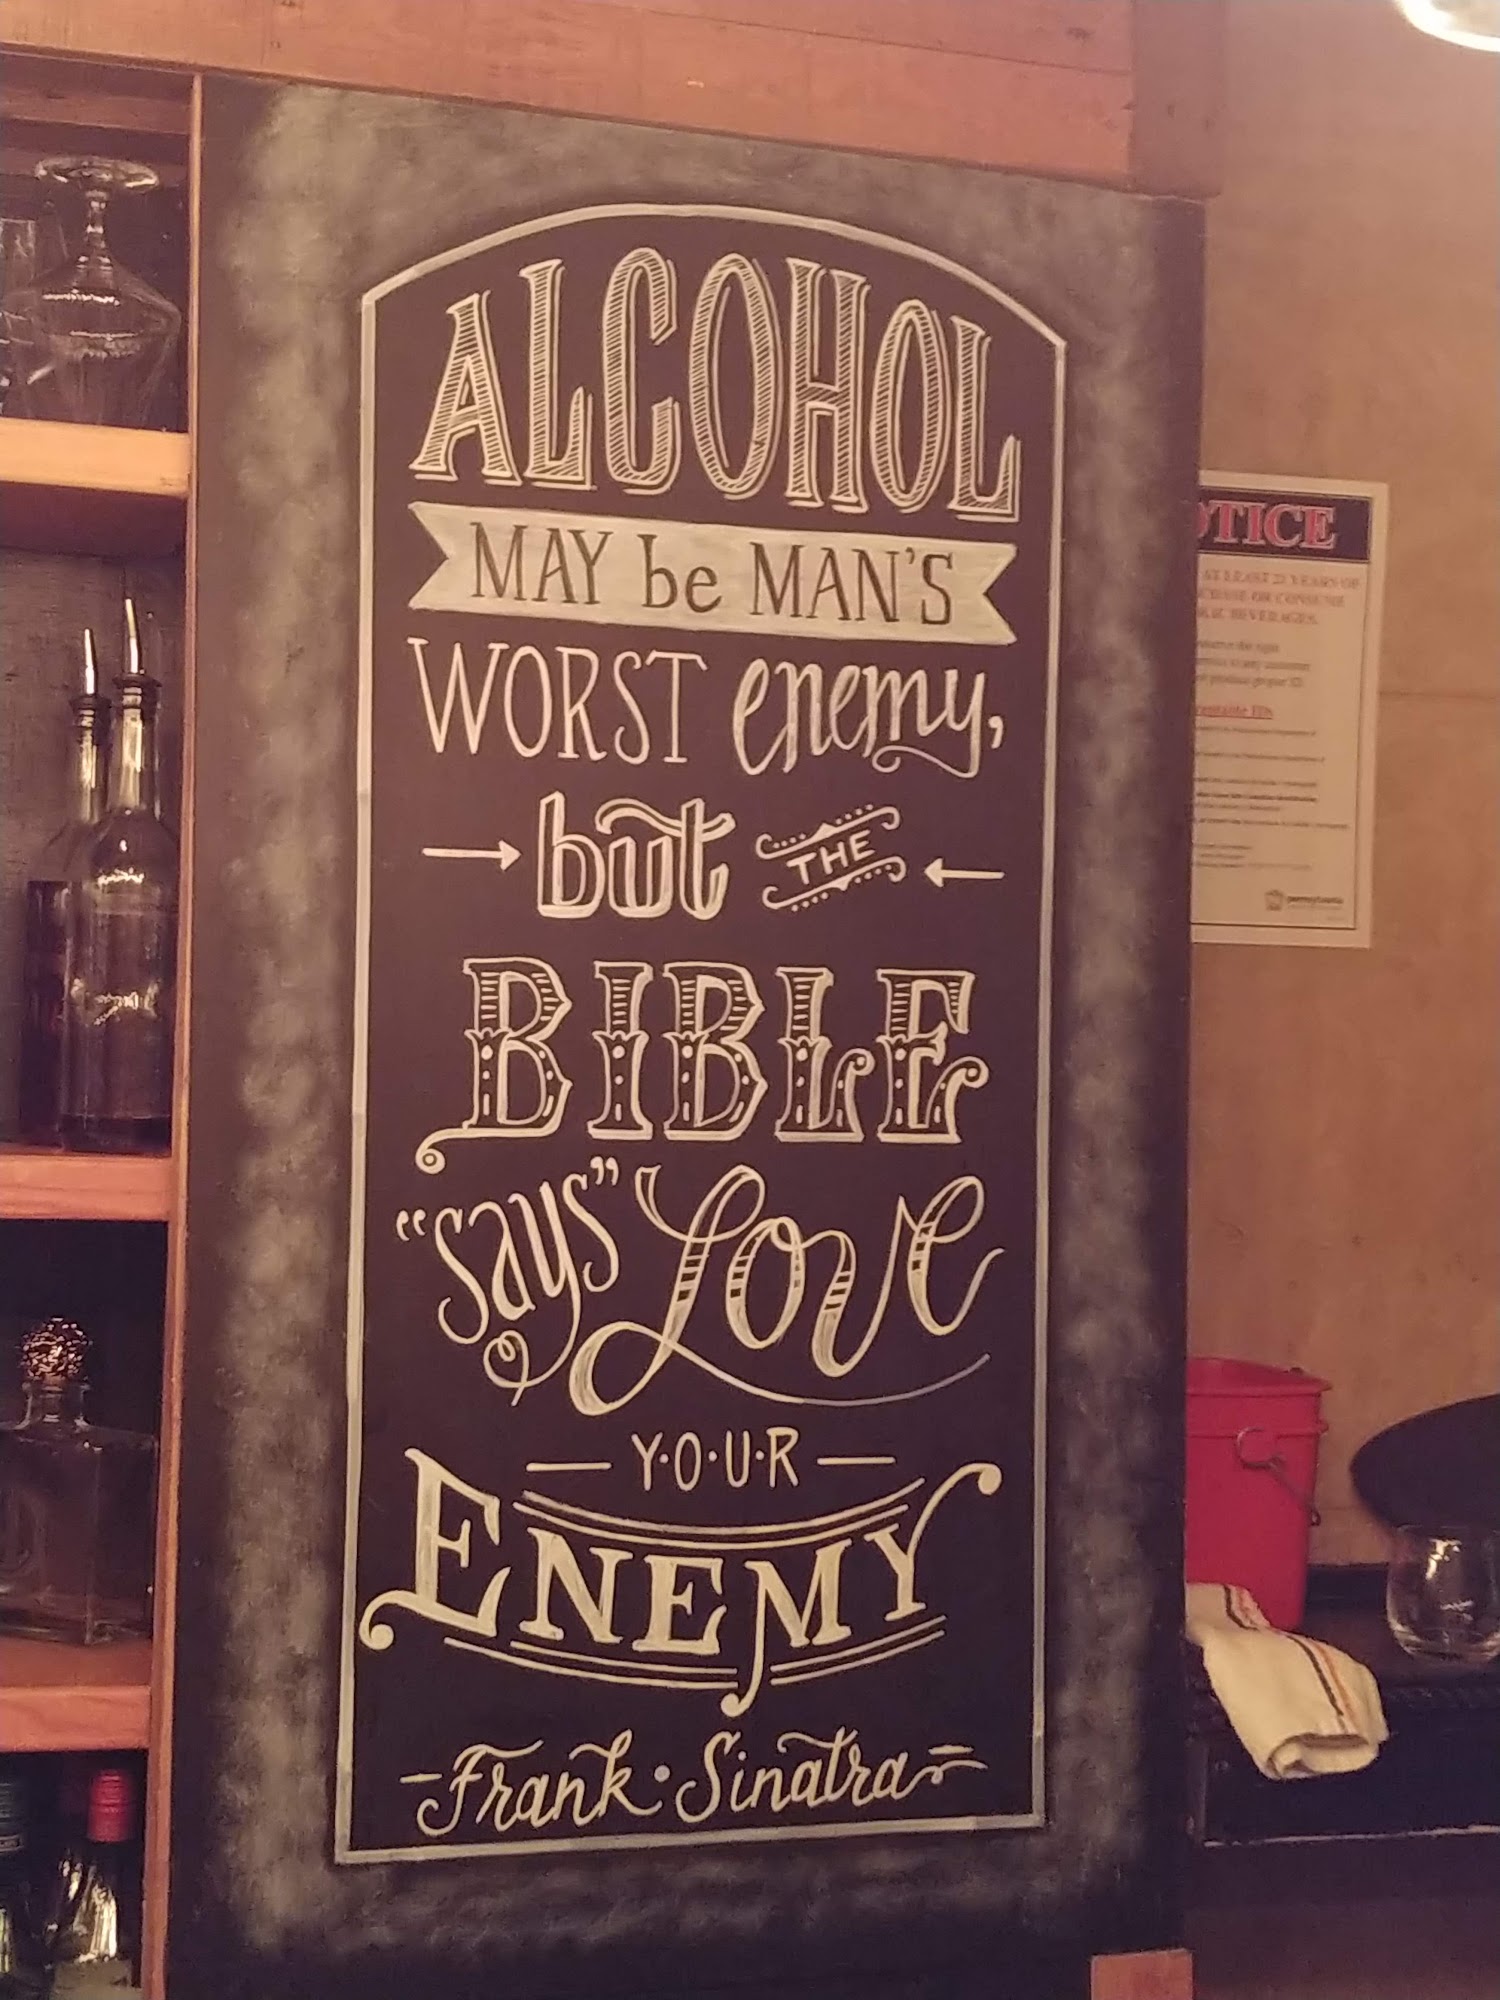 ALCOHOL
MAY be MAN'S
WORST enemy,
but THE
BIBLE
"says" Love
Y·O·U·R
ENEMY
-Frank·Sinatra
OTICE
AT LEAST 21 YEARS OF
CHASE OR CONSUME
BEVERAGES.
pennsylvania